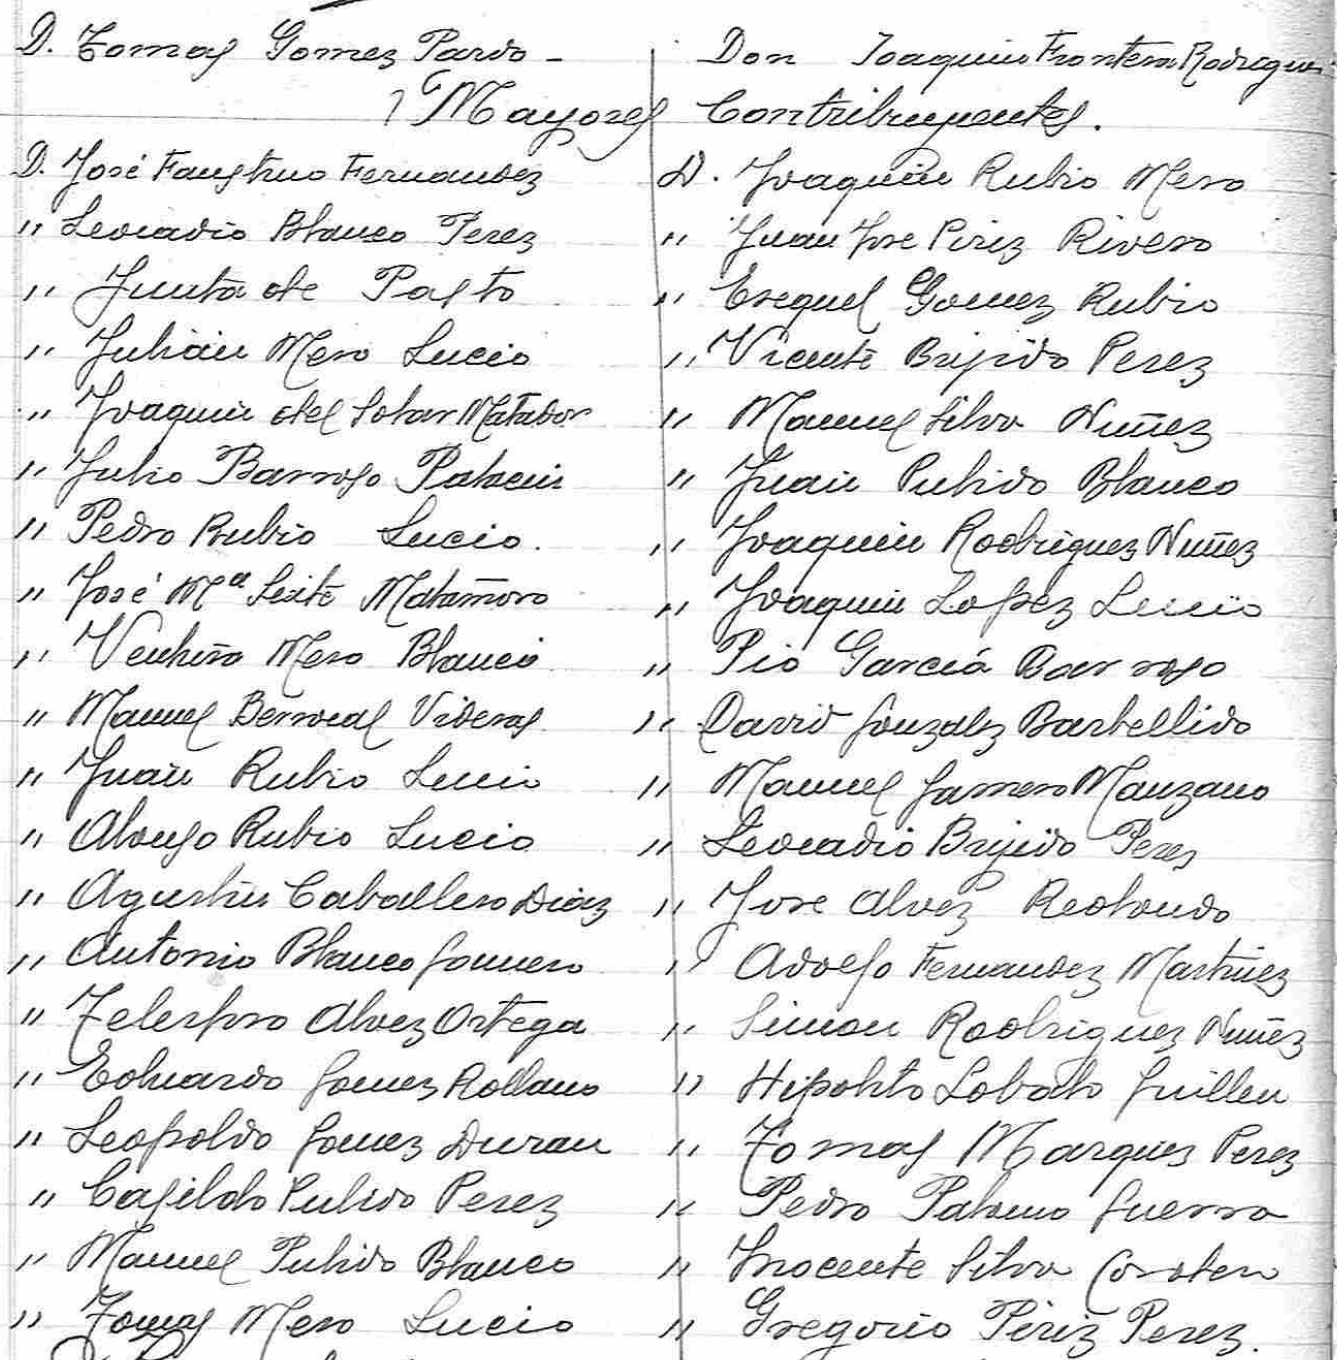 D. Tomas Gomez Pardo -
Don Joaquin Frontera Rodriguez
Mayores Contribuyentes.
D. José Faustino Fernandez
" Leocadio Blanco Perez
" Junta de Pasto
" Julián Mero Lucio
" Joaquin del Solar Matador
" Julio Barroso Palacin
" Pedro Rubio Lucio.
" José Mª Leite Matamoro
" Ventura Mero Blanco
" Manuel Berrocal Videras
" Juan Rubio Lucio
" Alonso Rubio Lucio
" Agustin Caballero Diaz
" Antonio Blanco Gomero
" Telesforo Alvez Ortega
" Eduardo Gomez Rollano
" Leopoldo Gomez Duran
" Casildo Pulido Perez
" Manuel Pulido Blanco
" Tomas Mero Lucio
D. Joaquin Rubio Mero
" Juan Jose Piriz Rivero
" Esequel Gomez Rubio
" Vicente Brijido Perez
" Manuel Silva Nuñez
" Juan Pulido Blanco
" Joaquin Rodriguez Nuñez
" Joaquin Lopez Lucio
" Pio Garcia Barroso
" David Gonzalez Barbellido
" Manuel Gamero Manzano
" Leocadio Brijido Perez
" Jose Alvez Redondo
" Adolfo Fernandez Martinez
" Simon Rodriguez Nuñez
" Hipolito Lobato Guillen
" Tomas Marquez Perez
" Pedro Palomo Guerra
" Inocente Silva
" Gregorio Piriz Perez.